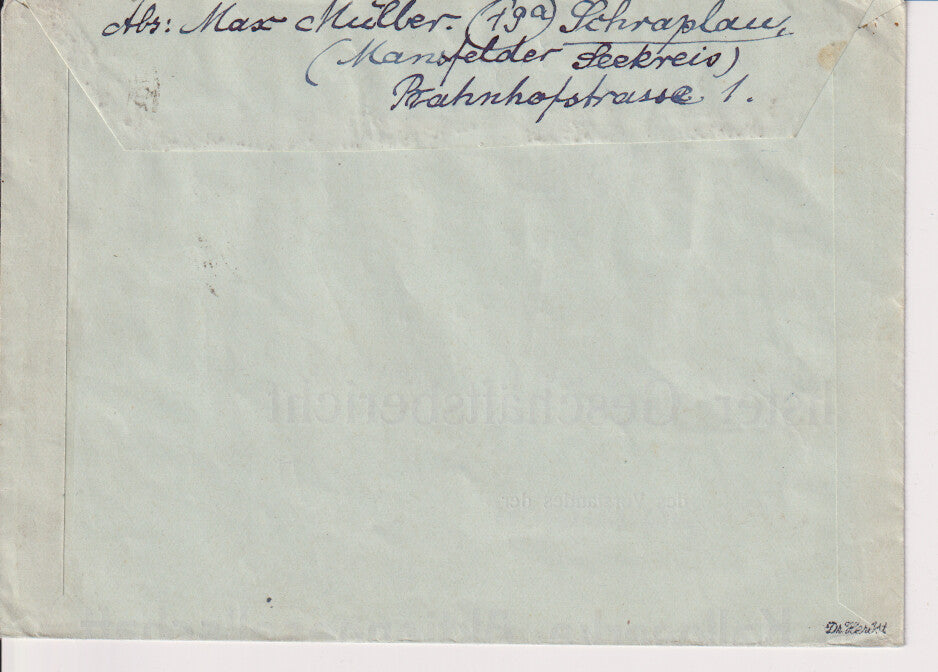 Abs: Max Müller. (19a) Schraplau,
(Mansfelder Seekreis)
Bahnhofstrasse 1.
Geschäftsbericht
des Vorstandes der